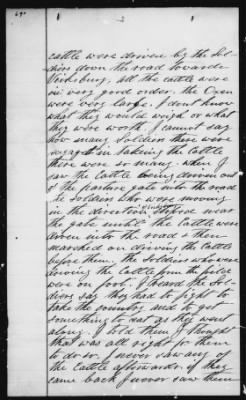 cattle were driven by the Sol-
diers down the road towards
Vicksburg, all the cattle were
in very good order. the Oxen
were very large. I dont know
what they would weigh or what
they were worth I cannot say
how many Soldiers there were
engaged in taking the Cattle
there were so many. when I
saw the Cattle being driven out
of the pasture gate into the road
the Soldiers who were moving
in the direction
the gate until the Cattle were
driven into the road & then
marched on driving the Cattle
before them, the Soldiers who were
driving the Cattle from the field
were on foot. I heard the Sol-
diers say they had to fight to
take the country and to get
something to eat as they went
along. I told them I thought
that was all right for them
to do so. I never saw any of
the Cattle afterwards if they
came back I never saw them